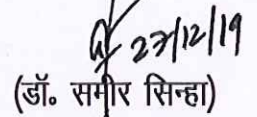 27/12/19
(डॉ० समीर सिन्हा)